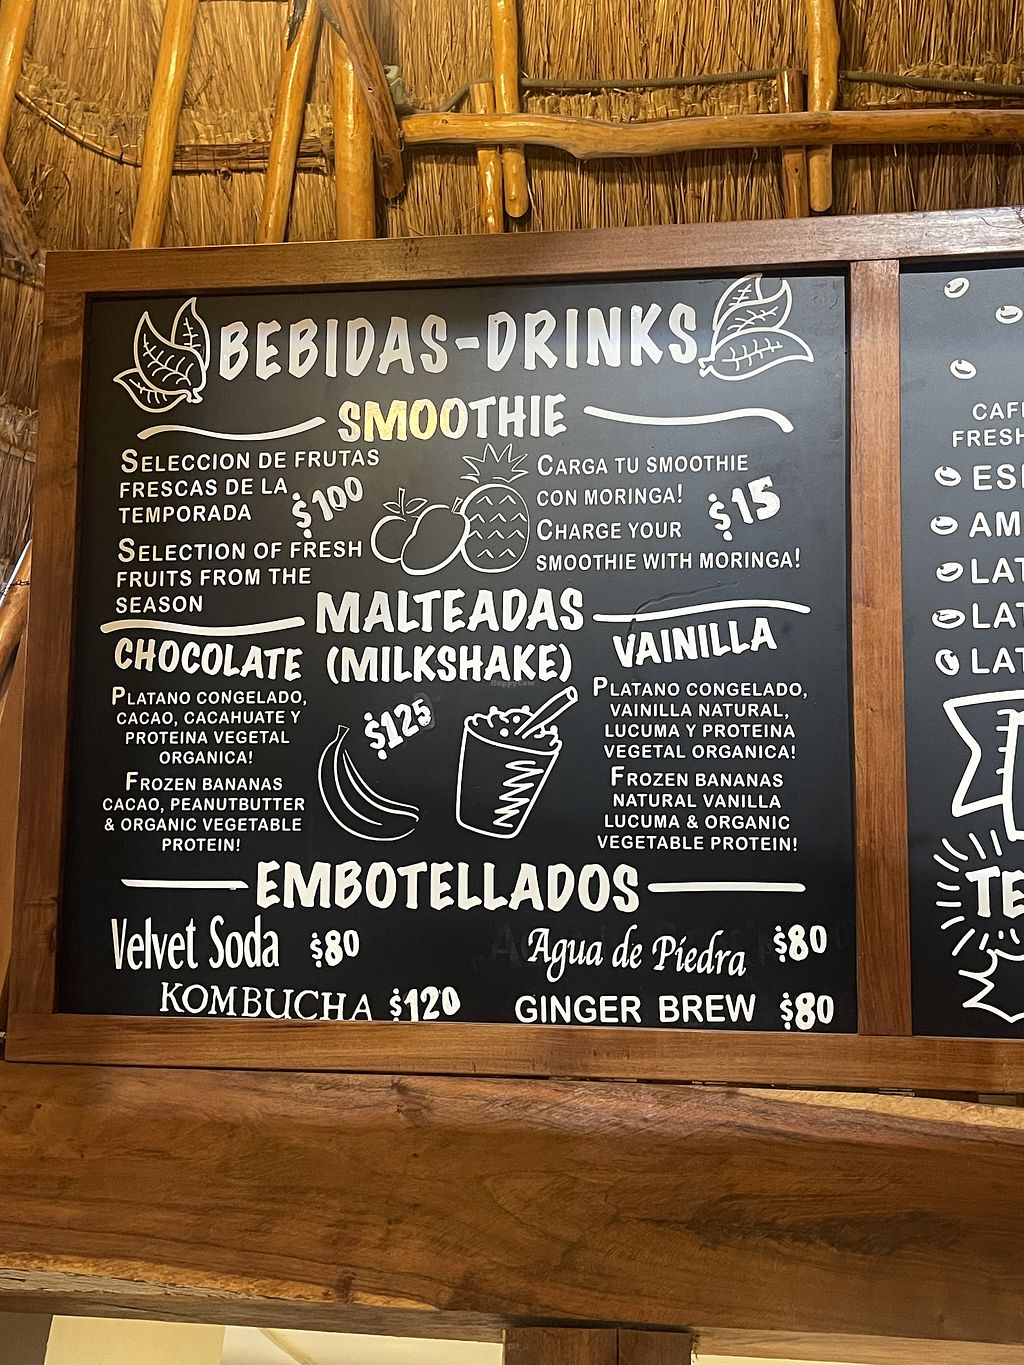 BEBIDAS-DRINKS
SMOOTHIE
SELECCION DE FRUTAS
FRESCAS DE LA
TEMPORADA
$100
SELECTION OF FRESH
FRUITS FROM THE
SEASON
CARGA TU SMOOTHIE
CON MORINGA!
$15
CHARGE YOUR
SMOOTHIE WITH MORINGA!
MALTEADAS
(MILKSHAKE)
$125
CHOCOLATE
PLATANO CONGELADO,
CACAO, CACAHUATE Y
PROTEINA VEGETAL
ORGANICA!
FROZEN BANANAS
CACAO, PEANUTBUTTER
& ORGANIC VEGETABLE
PROTEIN!
VAINILLA
PLATANO CONGELADO,
VAINILLA NATURAL,
LUCUMA Y PROTEINA
VEGETAL ORGANICA!
FROZEN BANANAS
NATURAL VANILLA
LUCUMA & ORGANIC
VEGETABLE PROTEIN!
EMBOTELLADOS
Velvet Soda $80
Agua de Piedra $80
KOMBUCHA $120
GINGER BREW $80
CAF
FRESH
ES
AM
LAT
LAT
LAT
TE
HappyCow